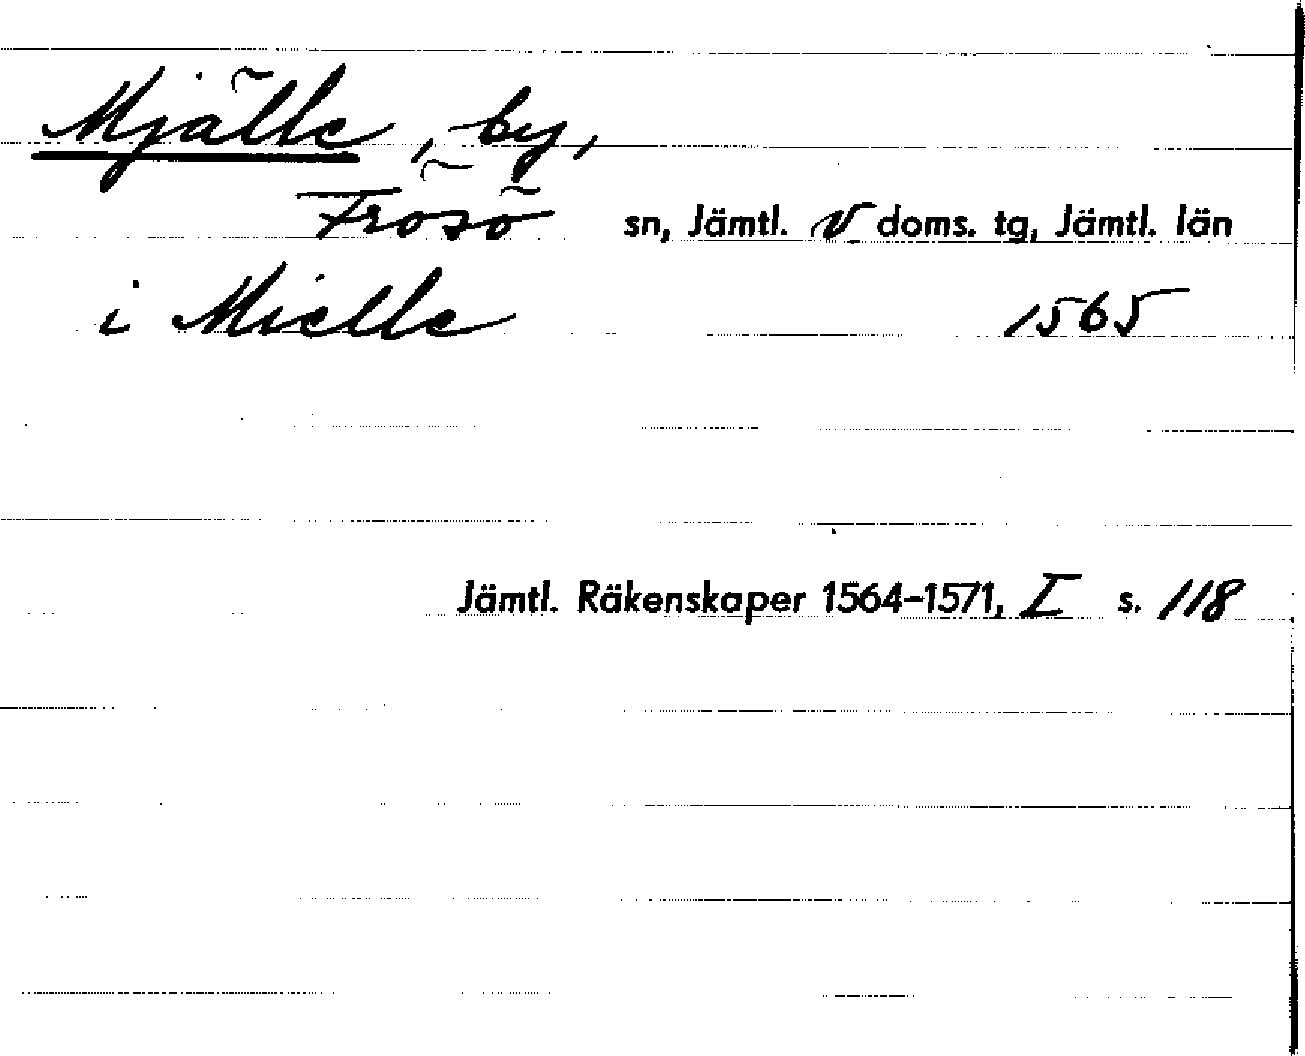 Mjälle, by,
Frösö sn, Jämtl. v doms. tg, Jämtl. län
i Mielle 1565
Jämtl. Räkenskaper 1564–1571, I s. 118